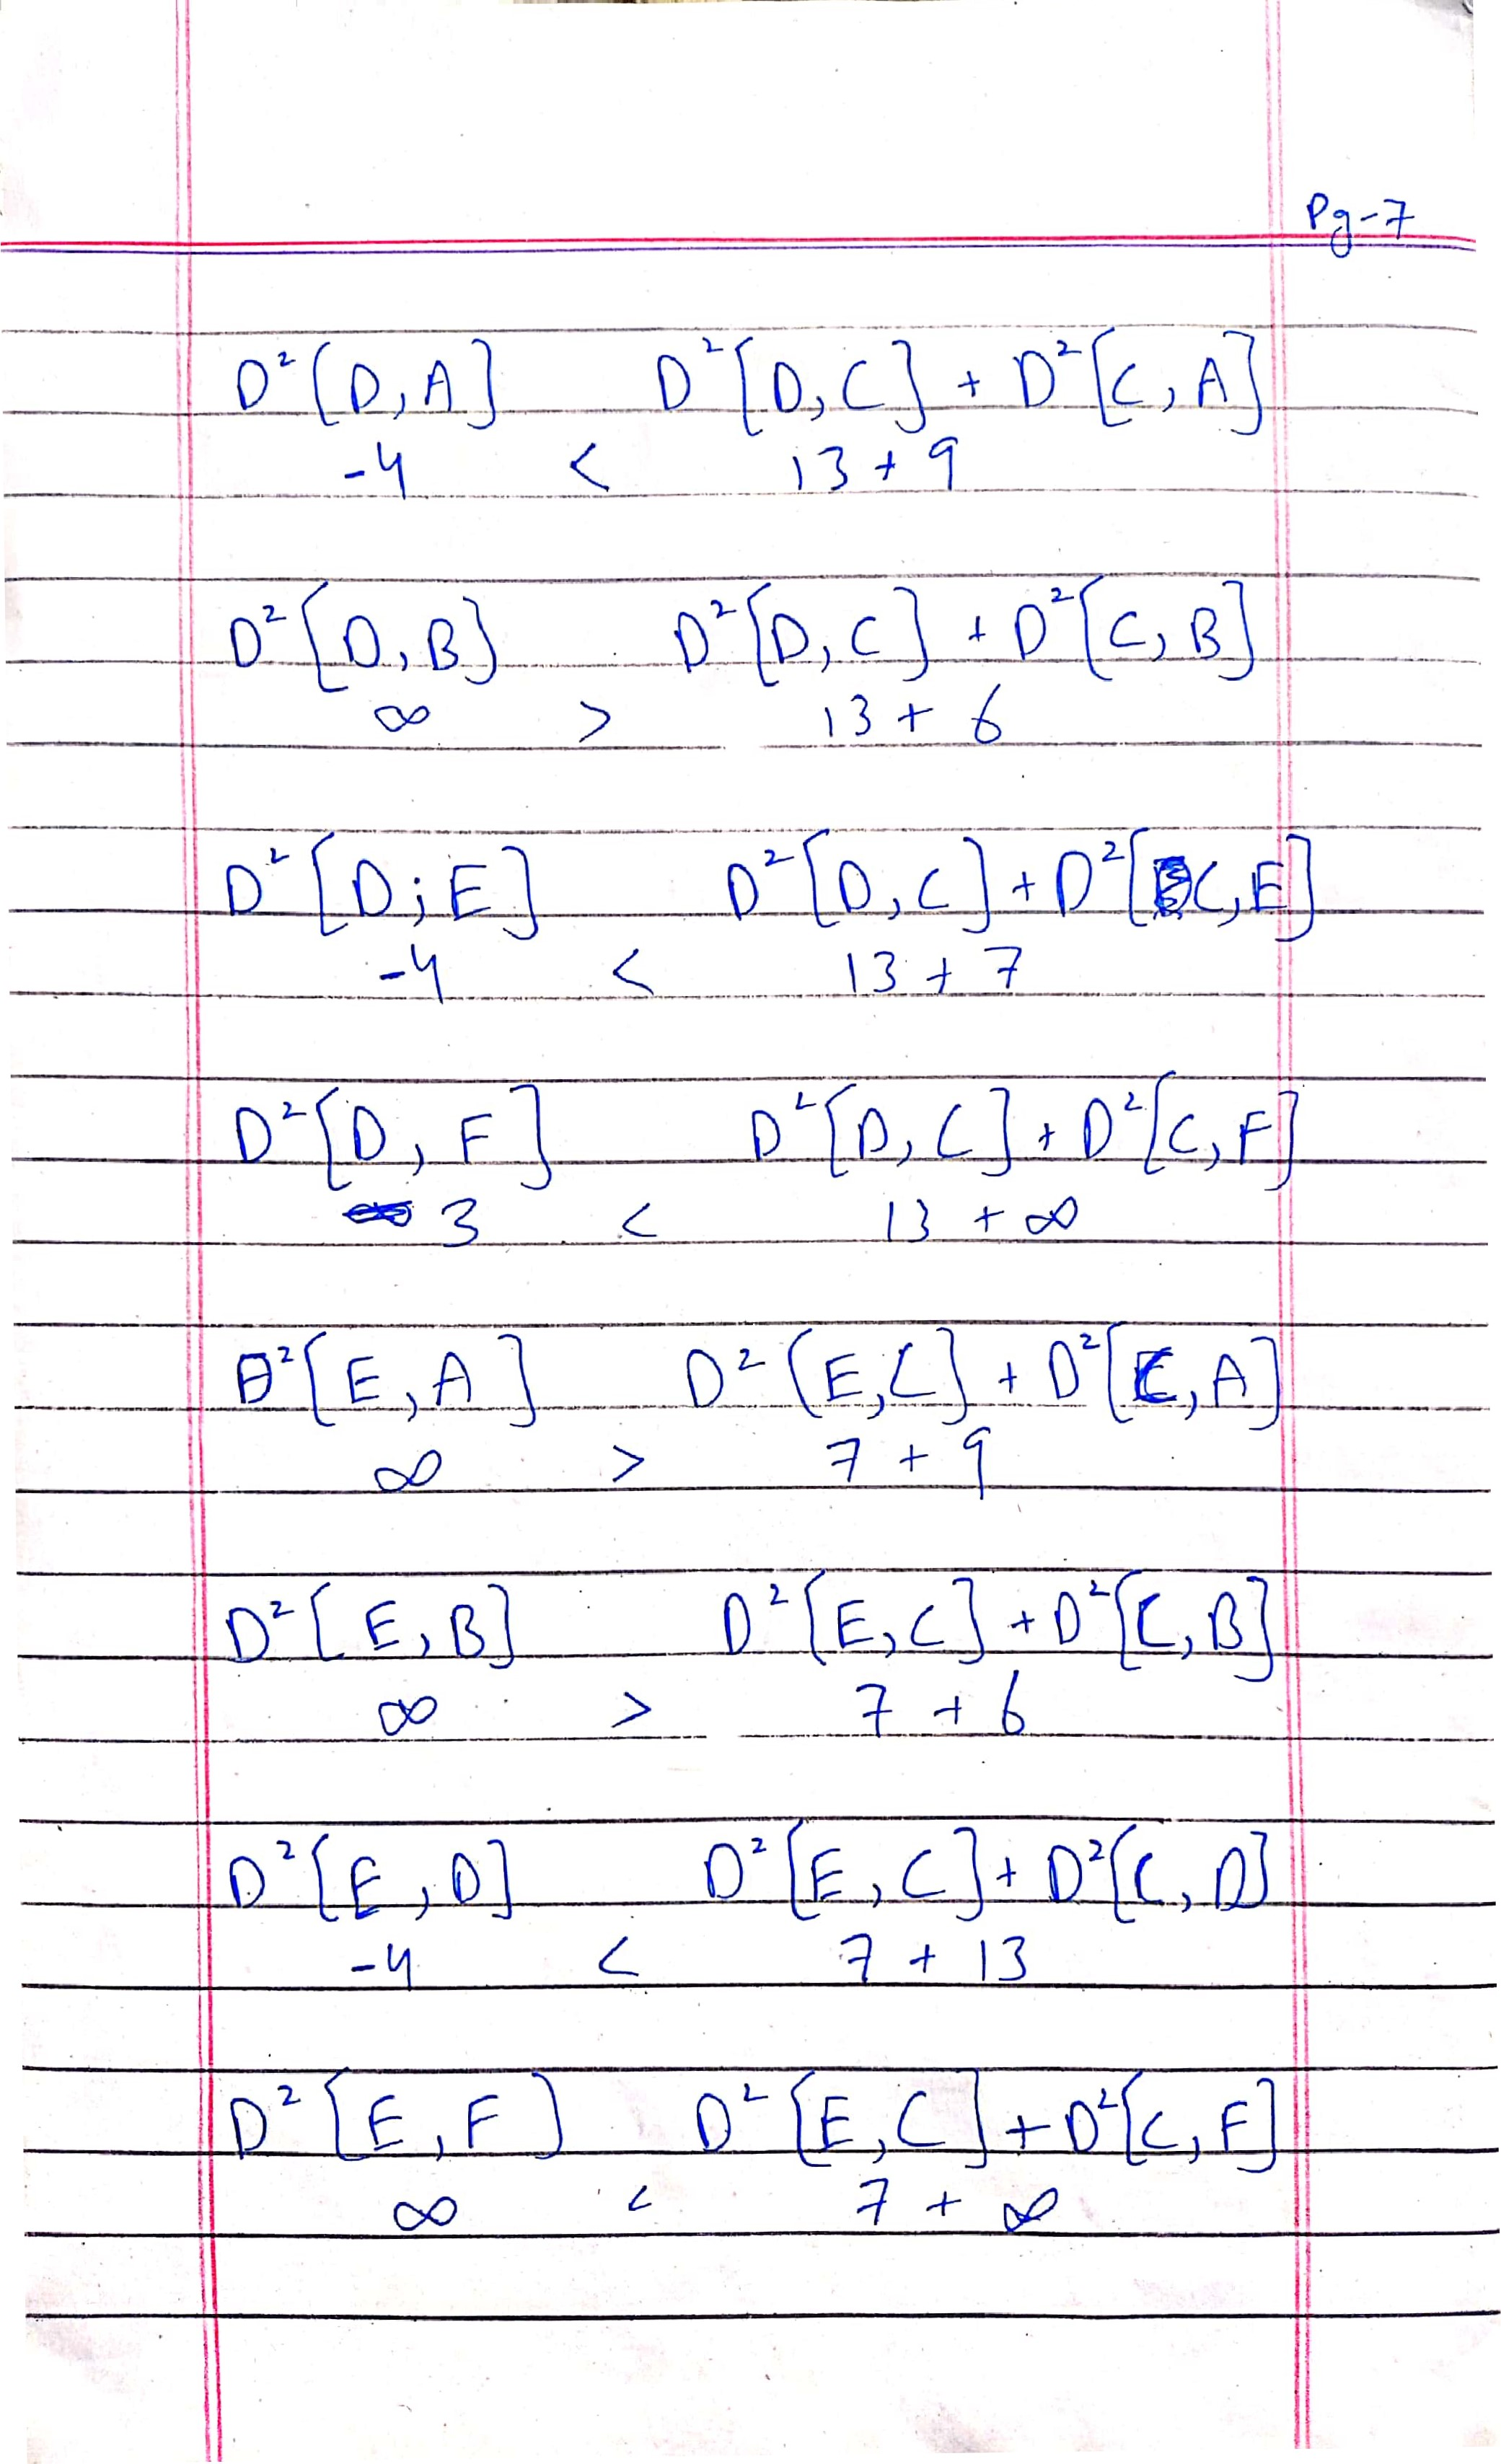 Pg-7
D²[D,A] D²[D,C] + D²[C,A]
-4 < 13 + 9
D²[D,B] D²[D,C] + D²[C,B]
∞ > 13 + 6
D²[D;E] D²[D,C] + D²[C,E]
-4 < 13 + 7
D²[D,F] D²[D,C] + D²[C,F]
3 < 13 + ∞
D²[E,A] D²[E,C] + D²[C,A]
∞ > 7 + 9
D²[E,B] D²[E,C] + D²[C,B]
∞ > 7 + 6
D²[E,D] D²[E,C] + D²[C,D]
-4 < 7 + 13
D²[E,F] D²[E,C] + D²[C,F]
∞ < 7 + ∞